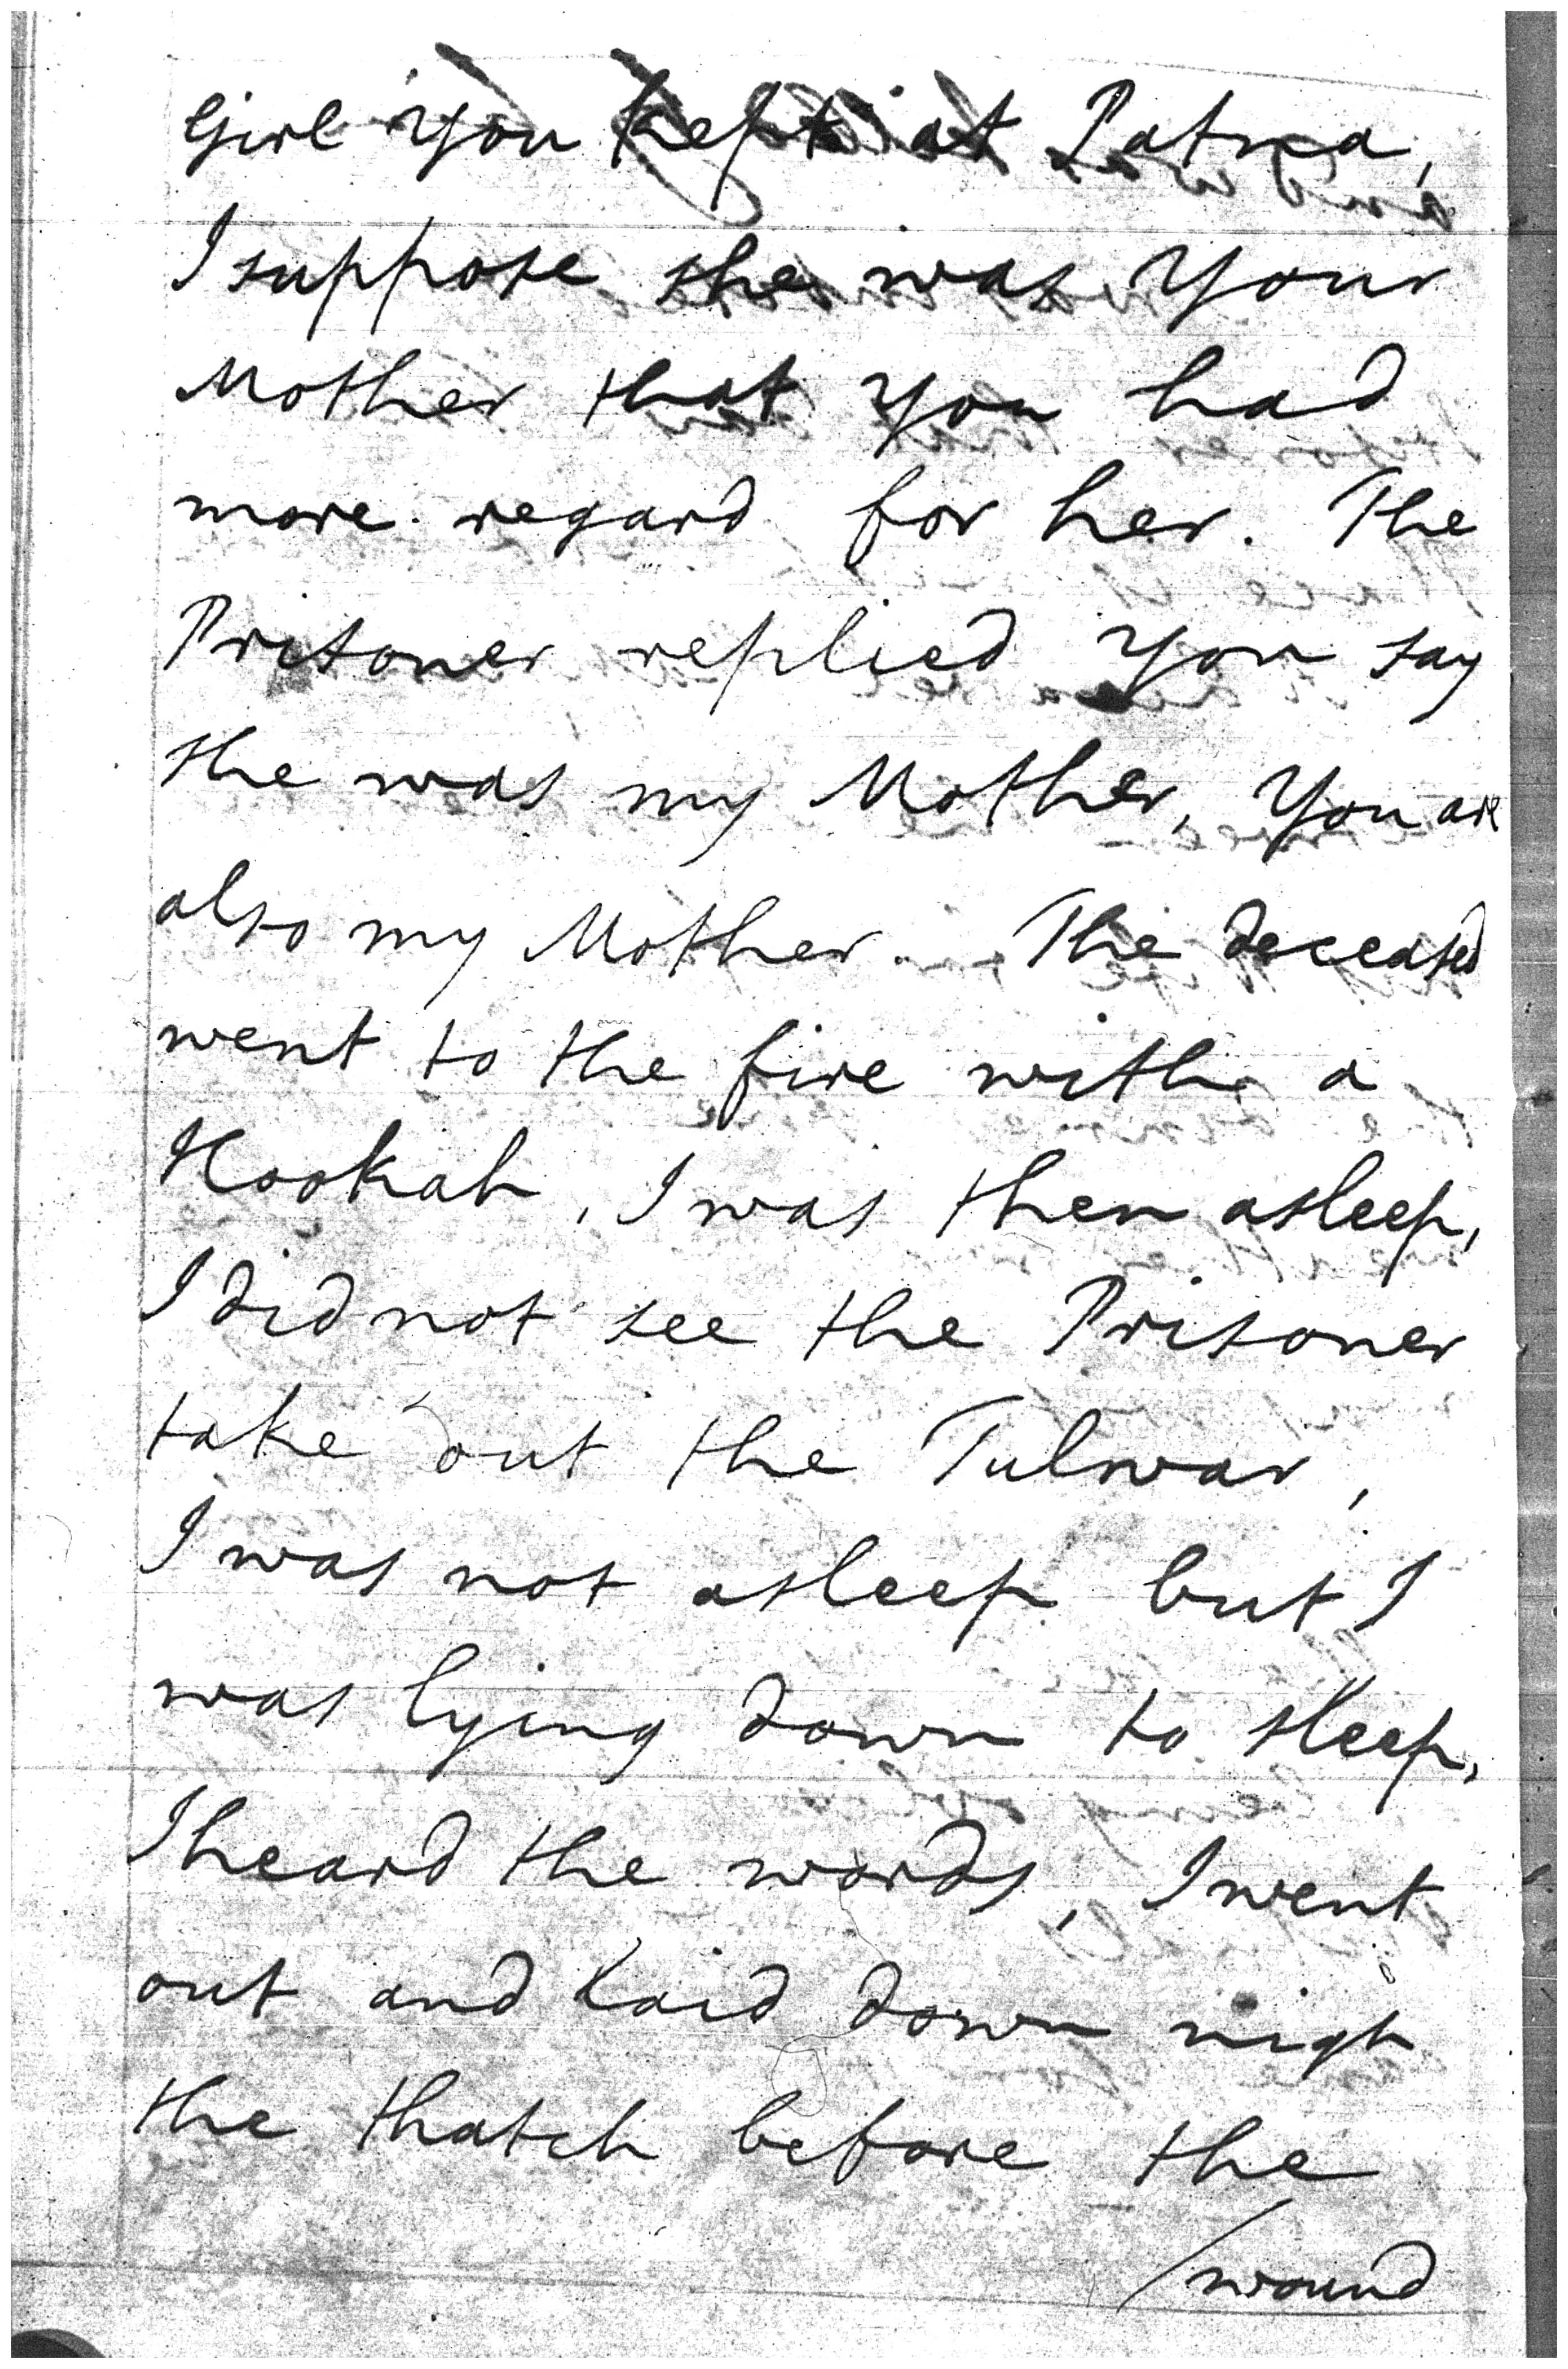 Girl you kept at Patna,
I suppose she was your
Mother that you had
more regard for her. The
Prisoner replied you say
she was my Mother, you are
also my Mother. The deceased
went to the fire with a
Hookah, I was then asleep,
I did not see the Prisoner
take out the Tulwar,
I was not asleep but I
was lying down to sleep,
I heard the words, I went
out and laid down nigh
the thatch before the
/wound